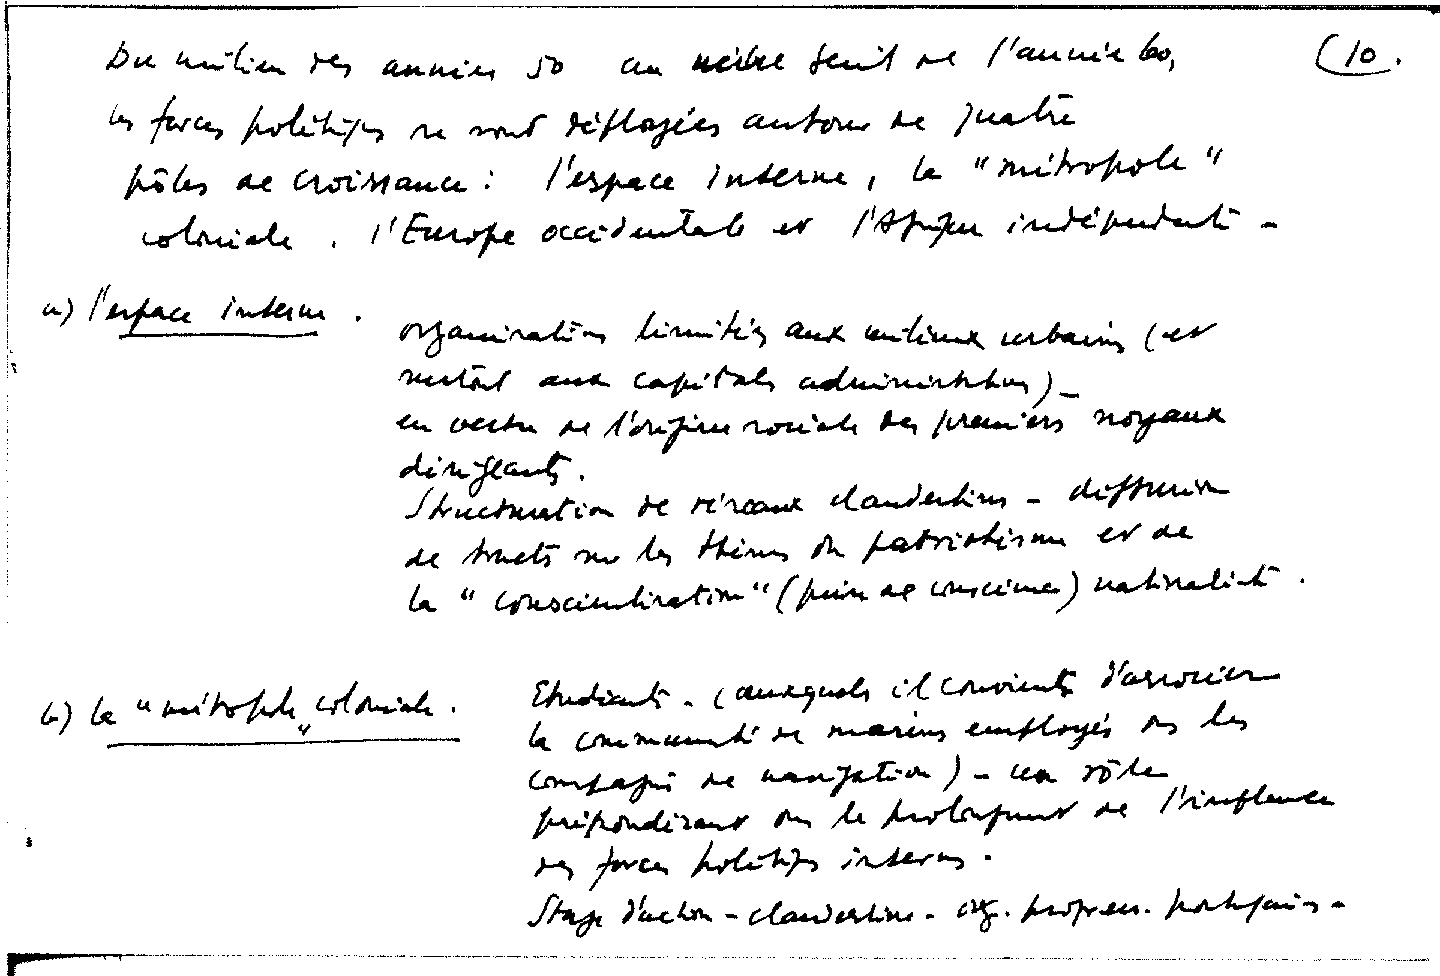 Du milieu des années 50 au seuil de l'année 60, (10.
les forces politiques se sont déployées autour de quatre
pôles de croissance : l'espace interne, la "métropole"
coloniale, l'Europe occidentale et l'Afrique indépendante -
a) l'espace interne .
organisations limitées aux milieux urbains (et
surtout aux capitales administratives) -
en vertu de l'origine sociale des premiers noyaux
dirigeants.
Structuration de réseaux clandestins - diffusion
de tracts sur les thèmes du patriotisme et de
la "conscientisation" (prise de conscience) nationaliste .
b) la "métropole" coloniale .
Etudiants - (auxquels il convient d'associer
la communauté de marins employés ds les
compagnies de navigation) - un rôle
prépondérant ds le prolongement de l'influence
des forces politiques internes .
Stage d'action - clandestine - org. progress. portugaises -